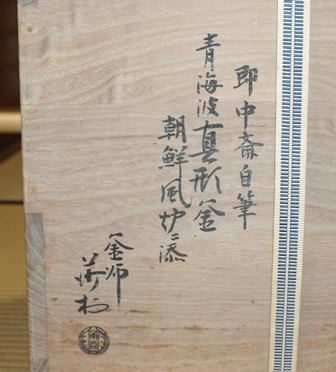 即中斎自筆
青海波真形釜
朝鮮風炉ニ添
釜師